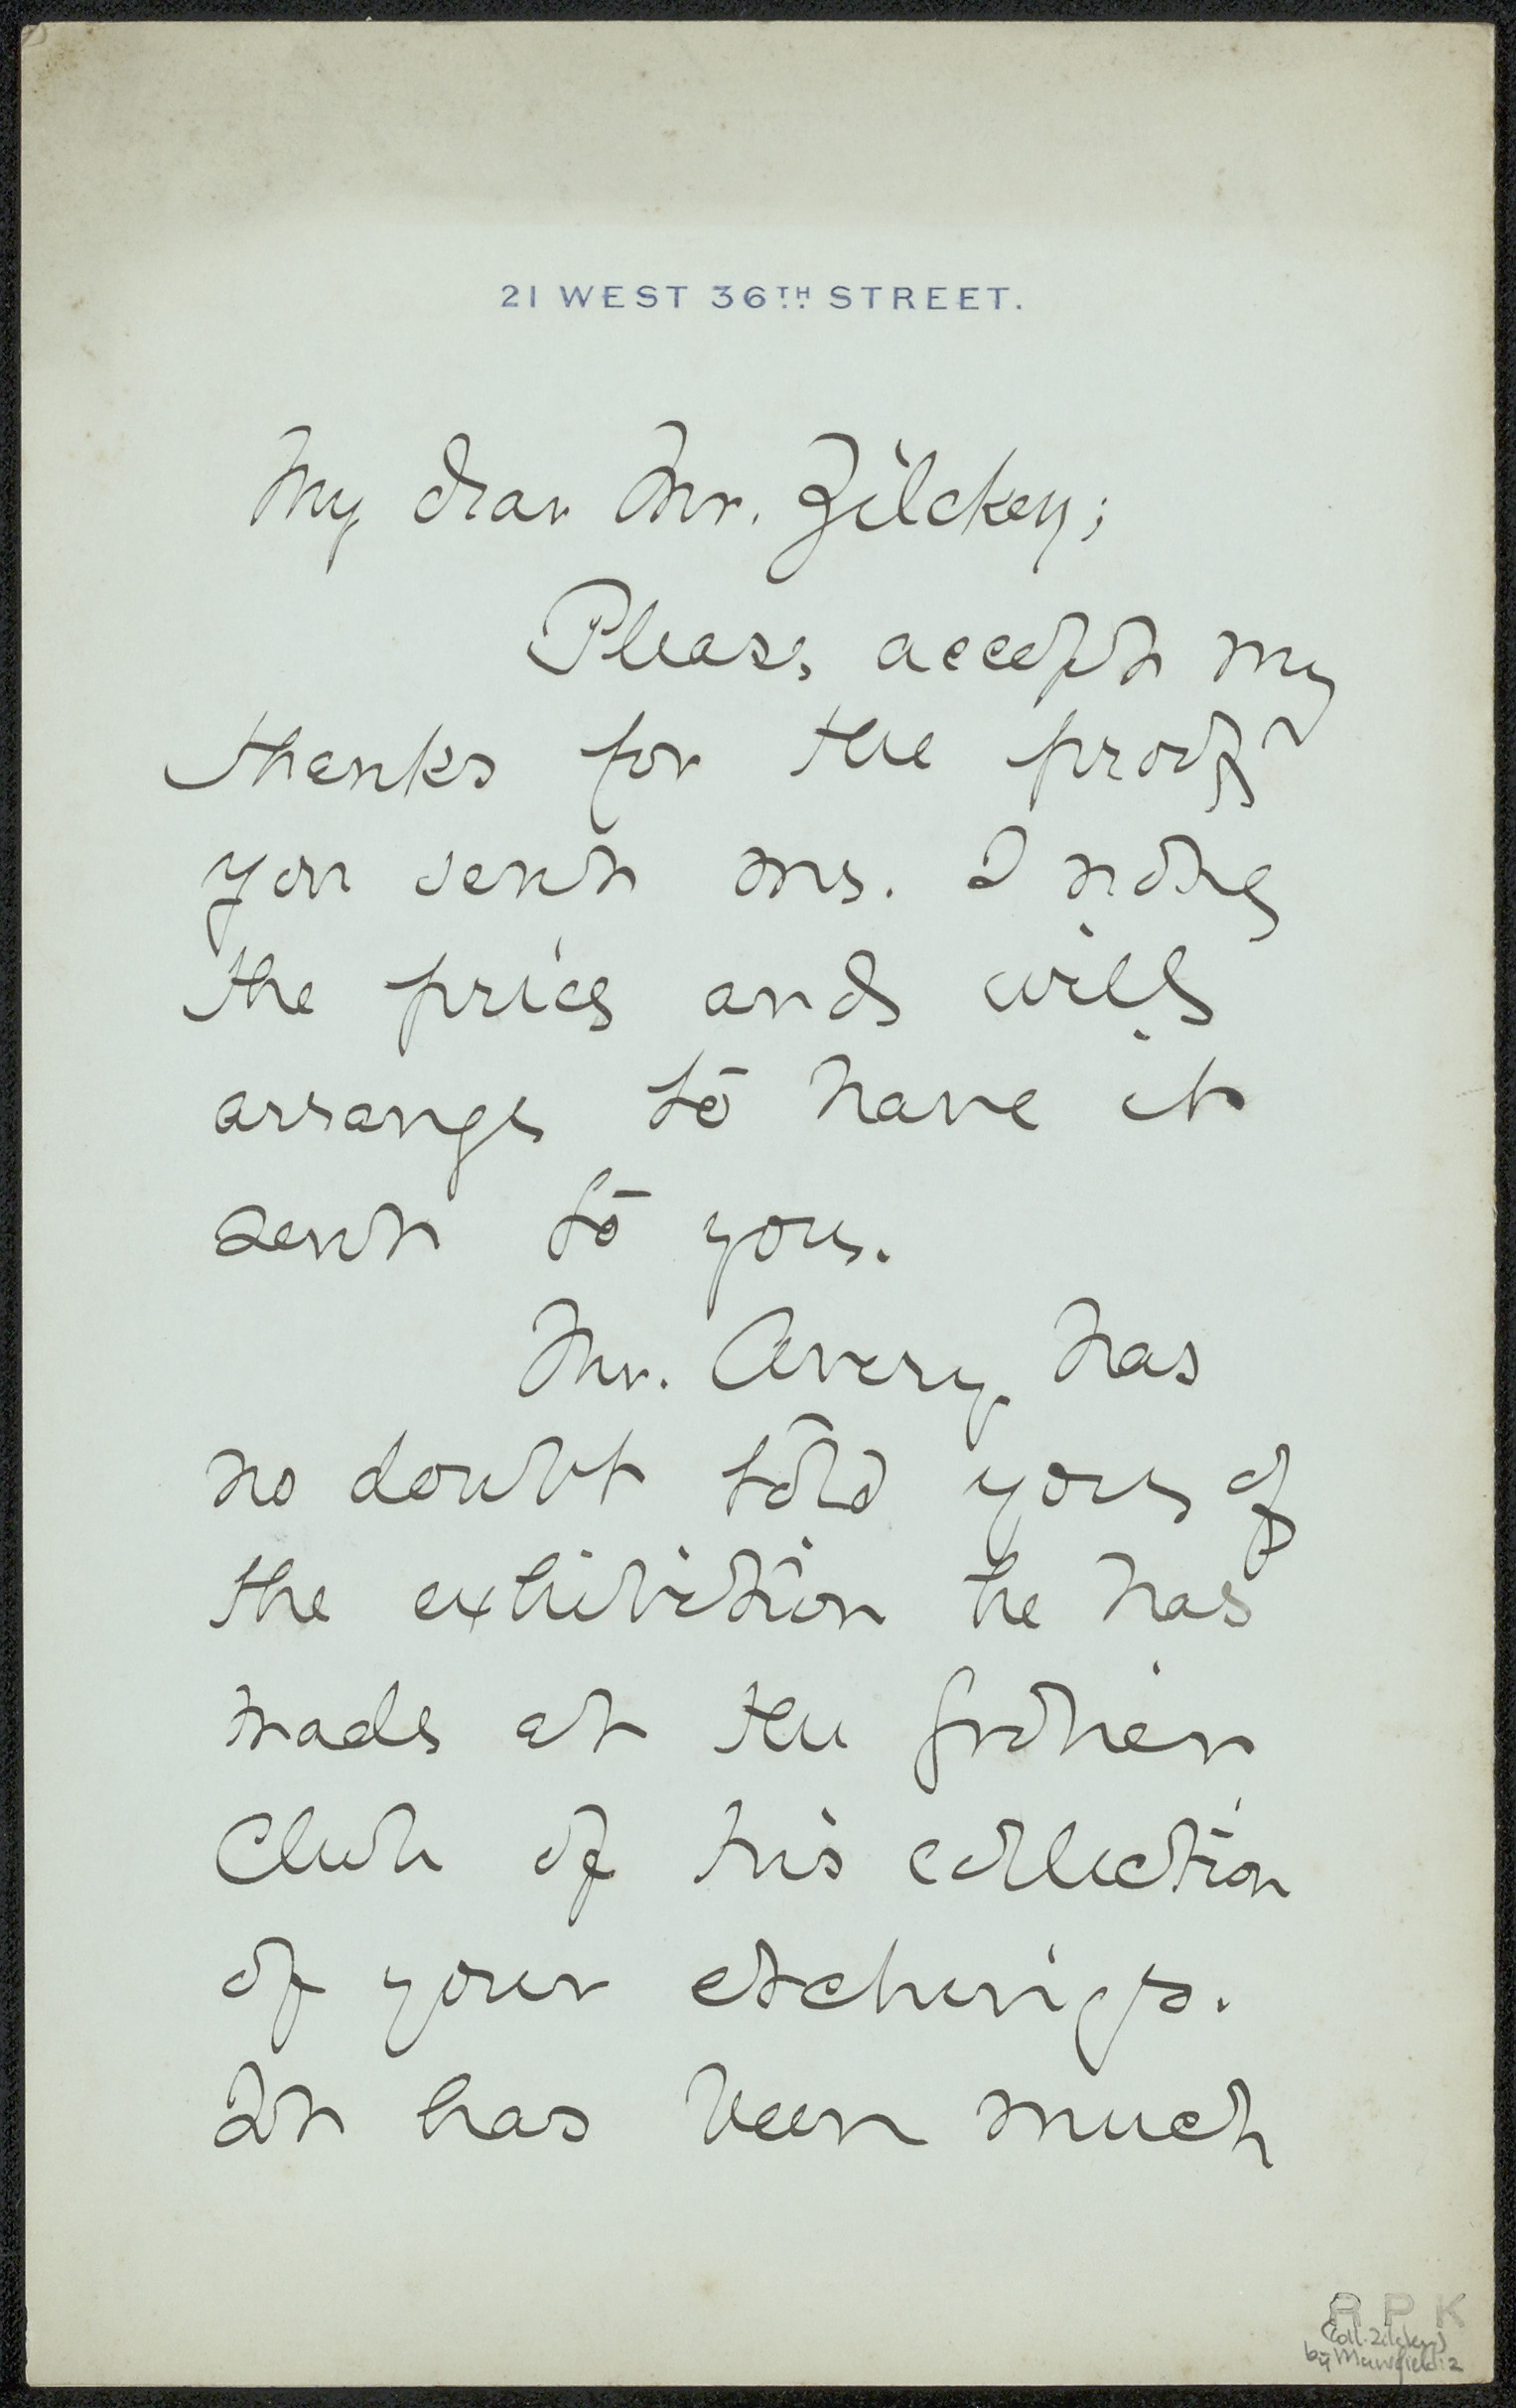 21 WEST 36TH STREET.
My dear Mr. Zilcken;
Please accept my
thanks for the proofs
you sent me. I note
the price and will
arrange to have it
sent to you.
Mr. Avery has
no doubt told you of
the exhibition he has
made at the Grolier
Club of his collection
of your etchings.
It has been much
R P K
(Coll. Zilcken)
by Mansfield: 2